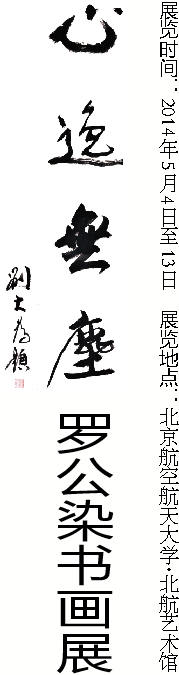 展览时间：2014年5月4日至13日　展览地点：北京航空航天大学·北航艺术馆
心逸無塵
劉大為題
罗公染书画展